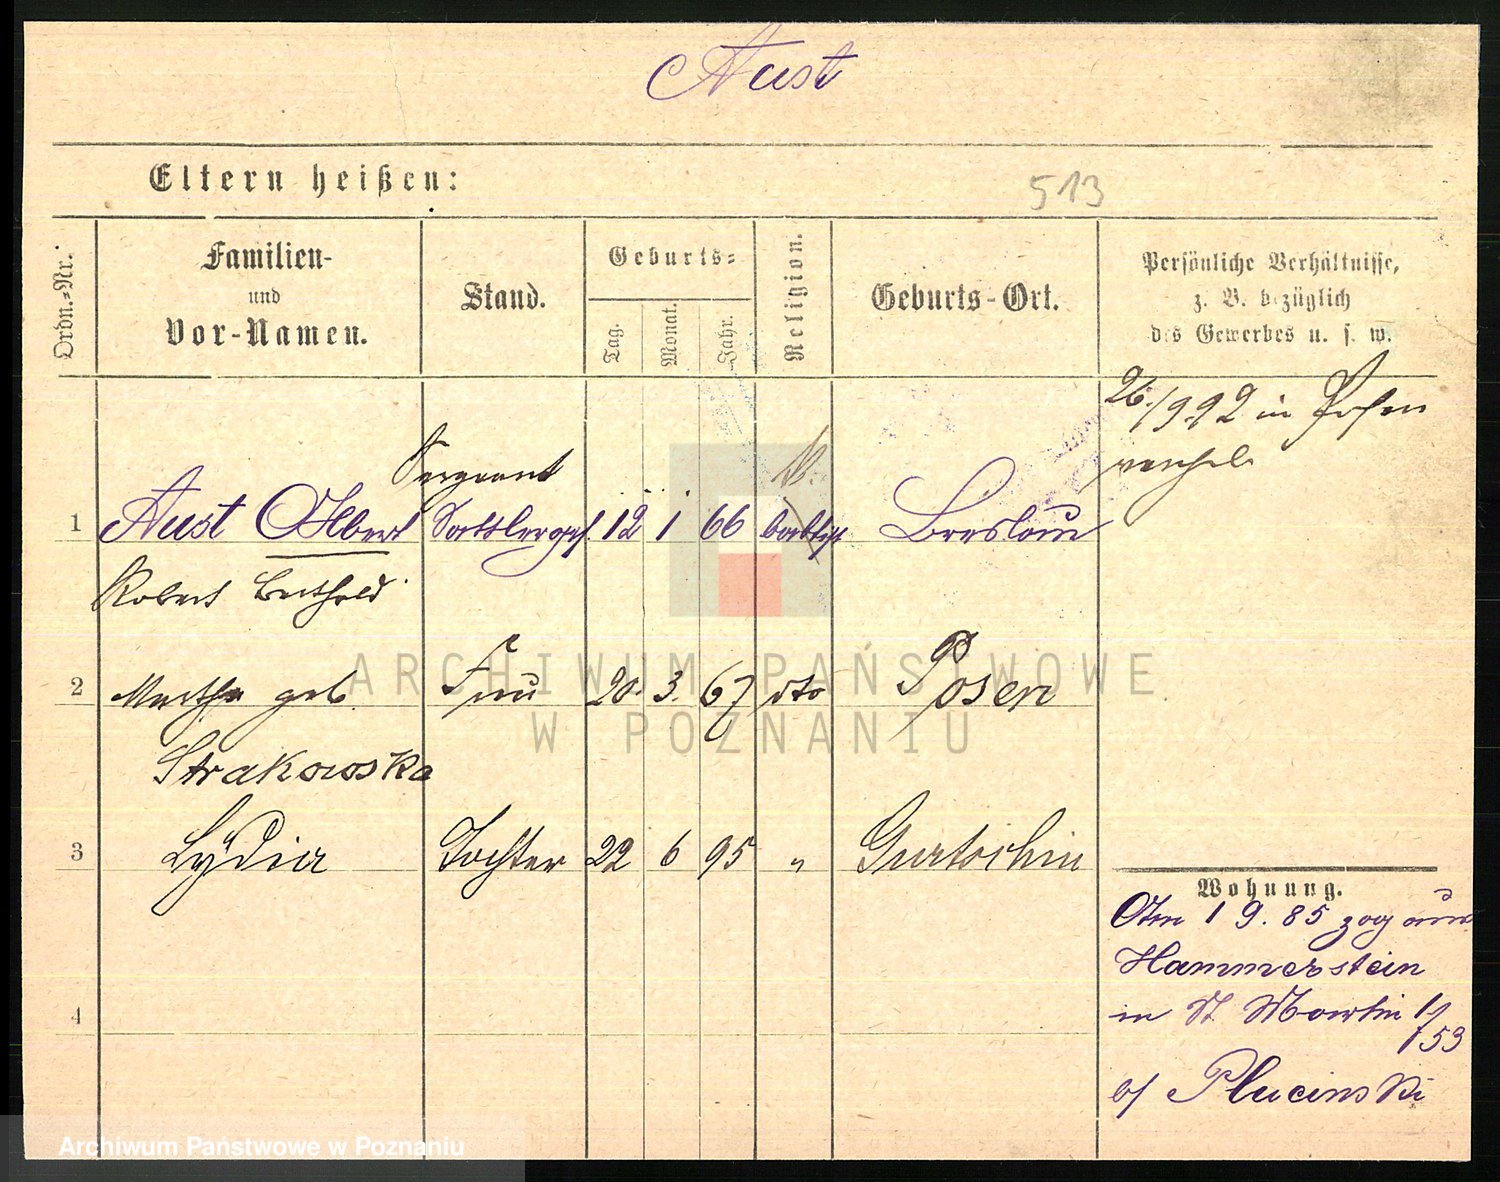 Aust
Eltern heißen:
513
Ordn.=Nr.
Familien-
und
Vor-Namen.
Stand.
Geburts=
Tag.
Monat.
Jahr.
Religion.
Geburts-Ort.
Persönliche Verhältnisse,
z. B. bezüglich
des Gewerbes u. s. w.
26./9.92 in Posen
Sergeant
1 Aust Albert Sattlerges. 12 1 66 Breslau
Robert Berthold
2 Martha geb. Frau 20. 3. 67 dto Posen
Strakowska
3 Lydia Tochter 22 6 95 " Gurtschin
Wohnung.
Am 1 9. 85 zog aus
Hammerstein
in St Martin
53
b/ Plucinski
4
ARCHIWUM PAŃSTWOWE
W POZNANIU
Archiwum Państwowe w Poznaniu